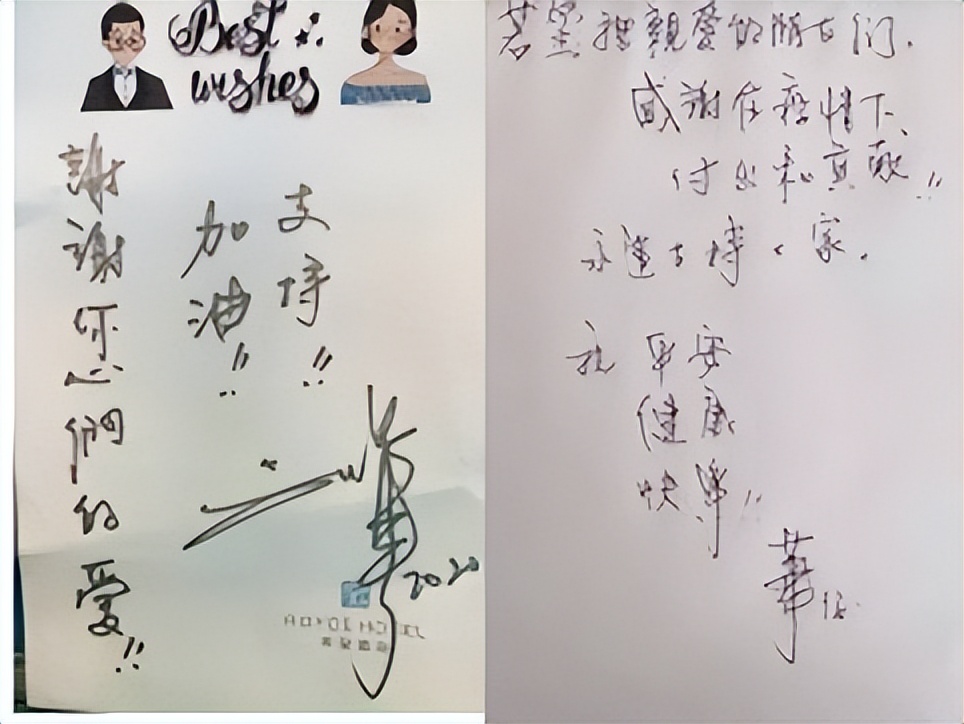 Best
wishes
謝謝您們的愛!!
加油!!
支持!!
2020
親愛的朋友们.
感谢在疫情下、
付出和貢献!!
永遠支持大家.
祝 平安
健康
快樂!!